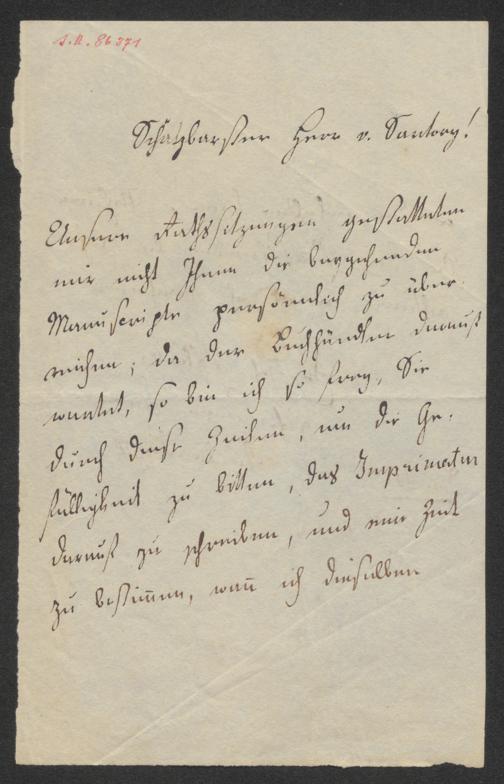 I.N. 86.371
Schätzbarster Herr v. Sartory!
Unsere Rathssitzungen gestatteten
mir nicht Ihnen die beygehenden
Manuscripte persönlich zu über-
reichen; da der Buchhändler darauf
wartet, so bin ich so frey, Sie
durch diese Zeilen, um die Ge-
fälligkeit zu bitten, das Imprimatur
darauf zu schreiben, und mir Zeit
zu bestimmen, wañ ich dieselben